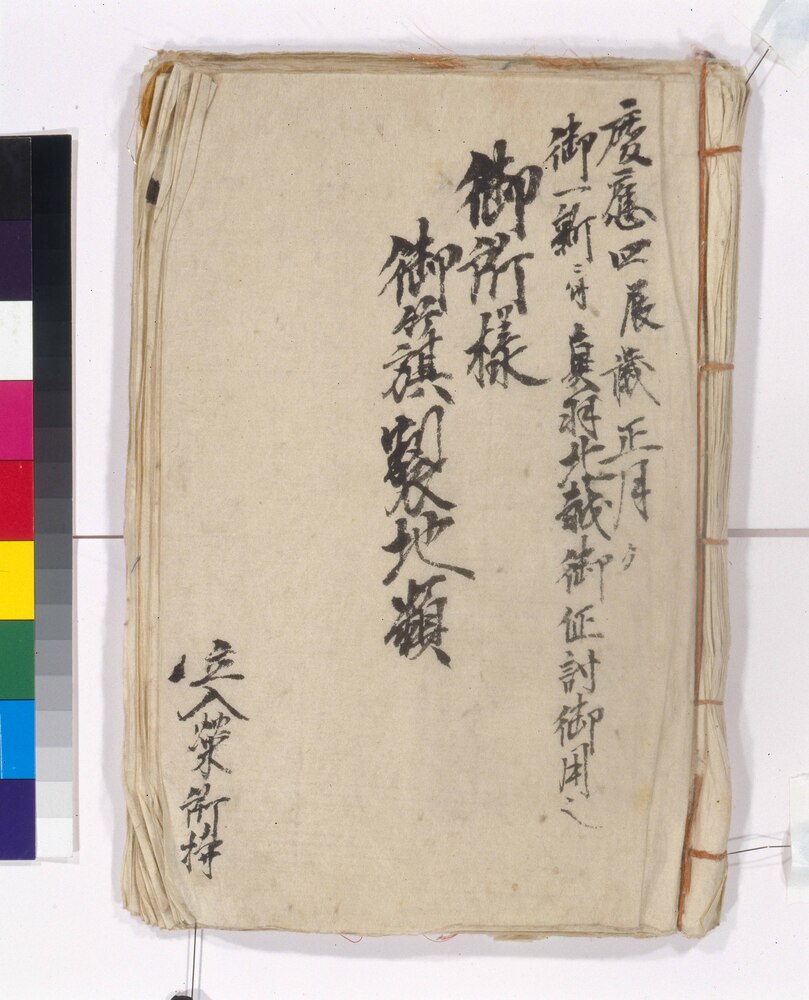 慶應四辰歳正月ゟ
御一新ニ付奥羽北越御征討御用之
御所様
御籏製地類
立入榮所持